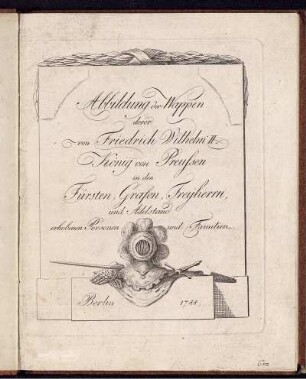 Abbildung der Wappen
derer
von Friedrich Wilhelm II.
König von Preussen
in den
Fürsten, Grafen, Freyherrn,
und Adelstand
erhobenen Personen und Familien.
Berlin 1788.